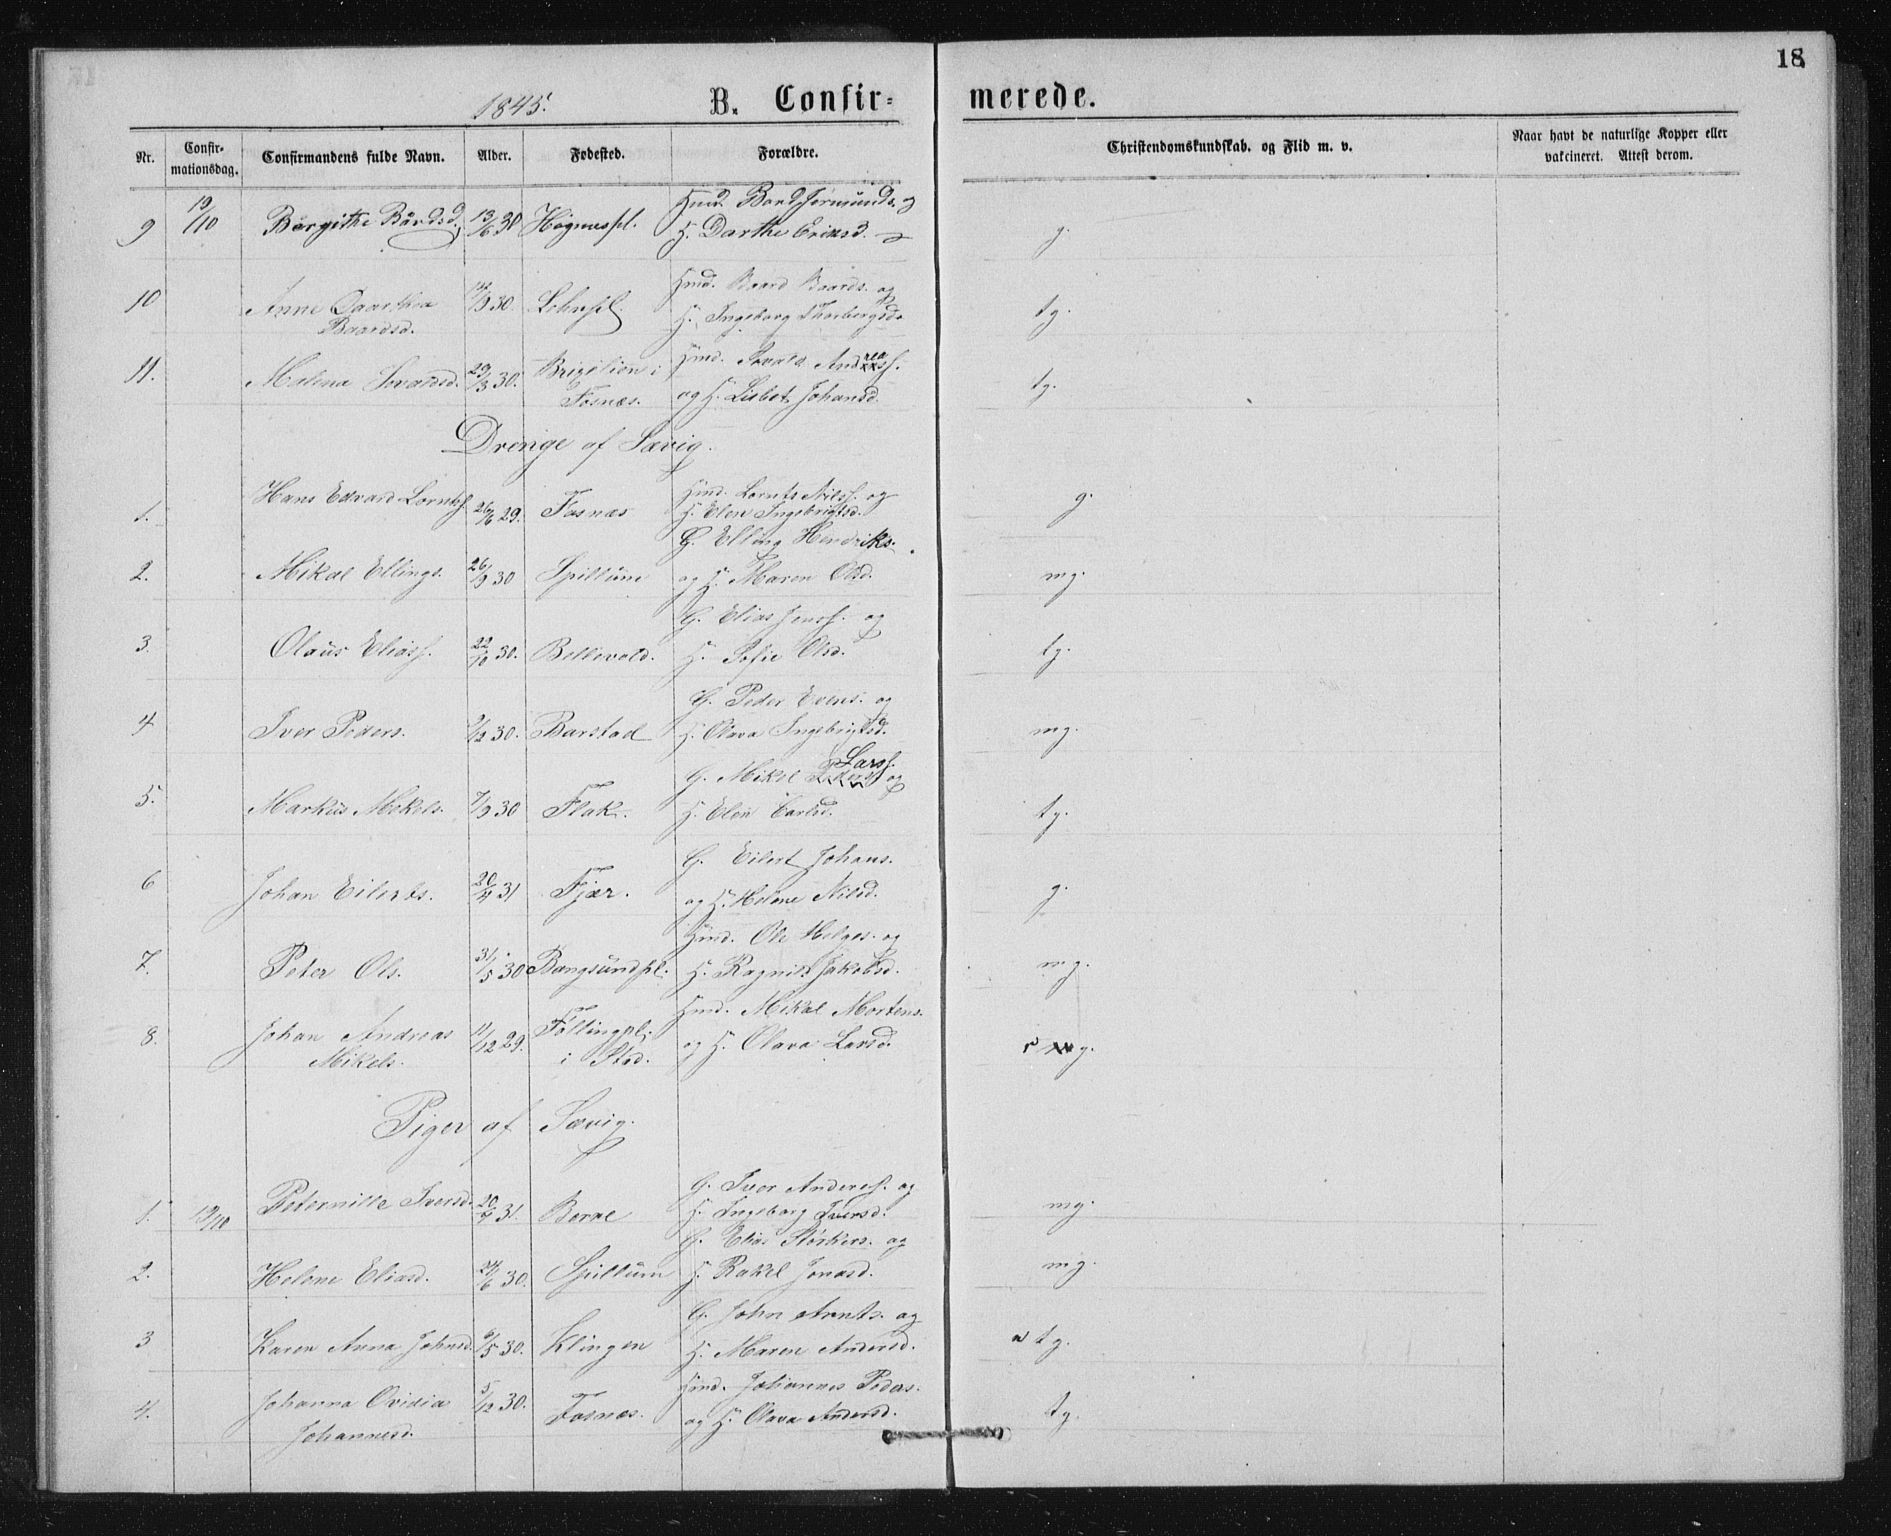 18
1845.
B. Confirmerede.
Nr. Confirmationsdag. Confirmandens fulde Navn. Alder. Fødested. Forældre. Christendomskundskab. og Flid m. v. Naar havt de naturlige Kopper eller vakcineret. Attest derom.
9 19/10 Bergithe Bårdsd. 13/6 30 Høgnespl. Hmd. Bård Jørmunds. og
H. Darthe Eriksd. g.
10 Anne Daarthea
Baardsd. 30. Hmd. Baard Baards. og
H. Ingeborg Thorbergsd. tg.
11. Malena Sivardsd. 29/3 30. i
Fosnæs. Hmd. Andreass.
og H. Lisbet Johansd. tg.
Drenge af Sævig.
1. Hans Edvard Lorntss. 26/6 29. Fosnæs Hmd. Lornts Nilss. og
H. Elen Ingebrigtsd. g.
2. Mikal Ellings. 26/9 30 Spillum G. Elling Hendriks.
og H. Maren Olsd. mg.
3. Olaus Eliass. 22/10 30. Bellevold. G. Elias Jenss. og
H. Sofie Olsd. tg.
4 Iver Peders. 9/12 30. Barstad G. Peder Evens. og
H. Olava Ingebrigtsd. mg.
5. Markus Mekels. 7/9 30 Flak. G. Mikel Larss. og
H. Elen Carlsd. tg.
6 Johan Eilerts. 20/4 31 Fjær. G. Eilert Johans.
og H. Helene Nilsd. g.
7. Peter Ols. 31/5 30 Bangsundpl. Hmd. Ole Helges. og
H. Ragnild Jakobsd. mg.
8. Johan Andreas
Mikels. 11/12 29. Føllingpl.
i Stod. Hmd. Mikal Mortens.
og H. Olava Larsd. g.
Piger af Sævig.
1. 19/10 Peternille Iversd. 20/4 31. Berre G. Iver Anderss. og
H. Ingeborg Iversd. mg.
2. Helene Eliasd. 24/6 30. Spillum G. Elias Størkers. og
H. Rakel Jonasd. mg.
3 Karen Anna Johnsd. 6/5 30. Klingen G. John Arnts. og
H. Maren Andersd. tg.
4. Johanna Ovidia
Johannesd. 5/12 30. Fosnæs. Hmd. Johannes Peders.
og H. Olava Andersd. tg.